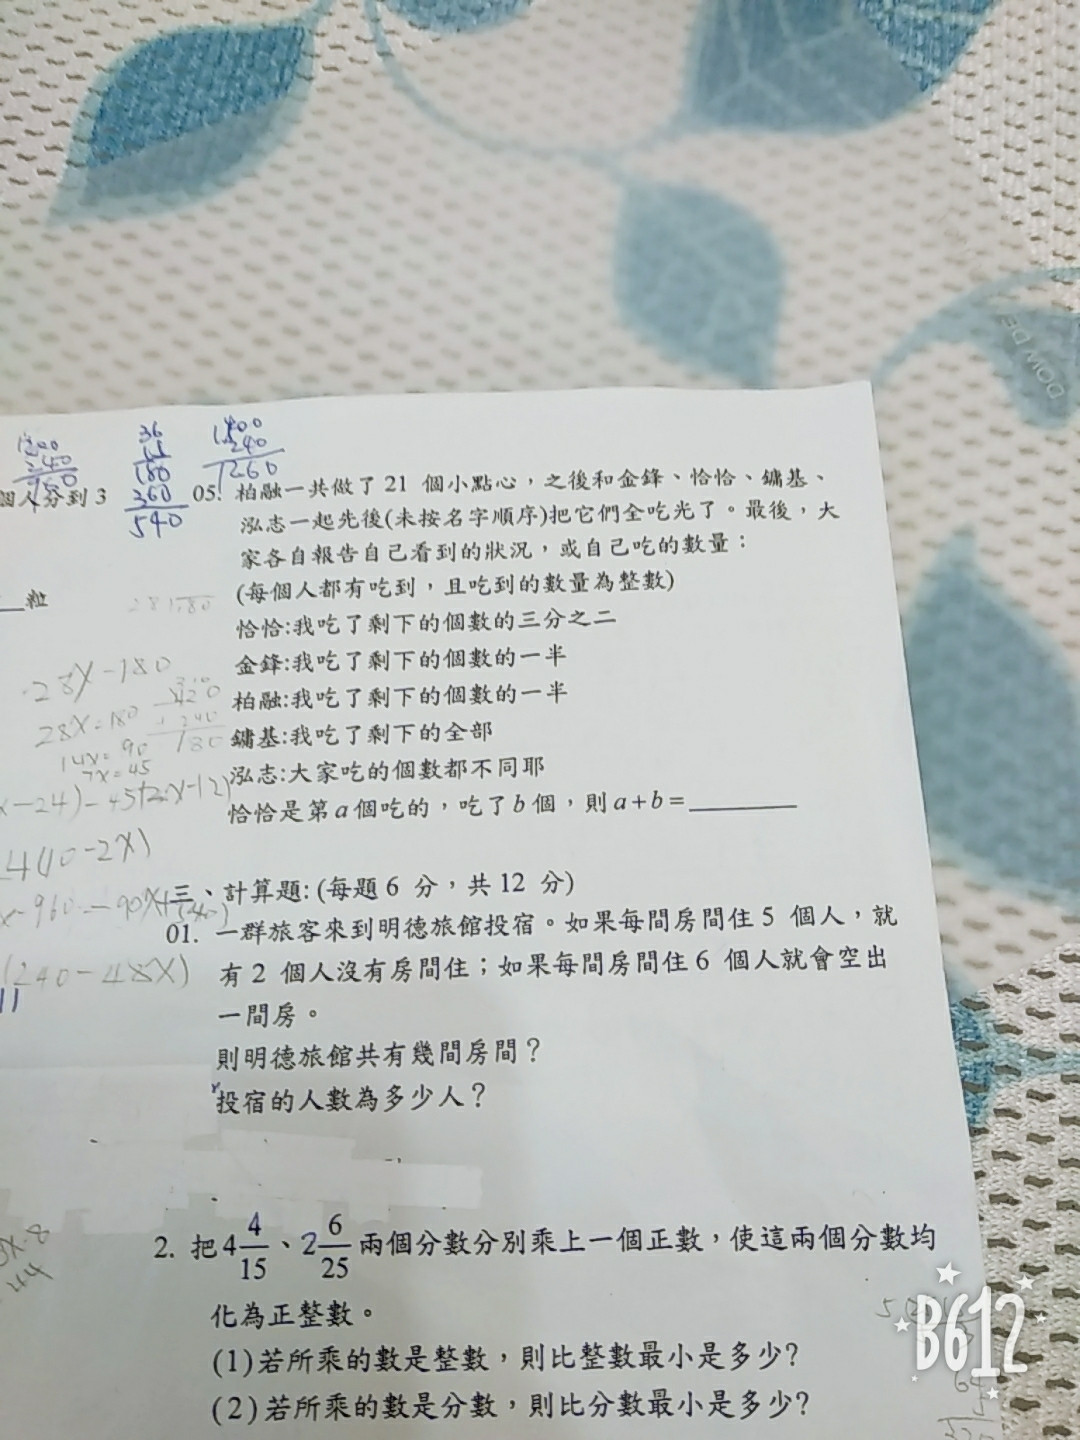 1200
240
960
36
15
180
360
540
1400
240
1260
個人分到 3
粒
28X-180
28X=180
14X=90
7X=45
4(10-2X)
(240-48X)
11
05. 柏融一共做了 21 個小點心，之後和金鋒、恰恰、鏞基、
泓志一起先後(未按名字順序)把它們全吃光了。最後，大
家各自報告自己看到的狀況，或自己吃的數量：
(每個人都有吃到，且吃到的數量為整數)
恰恰:我吃了剩下的個數的三分之二
金鋒:我吃了剩下的個數的一半
柏融:我吃了剩下的個數的一半
鏞基:我吃了剩下的全部
泓志:大家吃的個數都不同耶
恰恰是第a個吃的，吃了b個，則a+b=
三、計算題:(每題 6 分，共 12 分)
01. 一群旅客來到明德旅館投宿。如果每間房間住 5 個人，就
有 2 個人沒有房間住；如果每間房間住 6 個人就會空出
一間房。
則明德旅館共有幾間房間？
投宿的人數為多少人？
2. 把4 4/15、2 6/25 兩個分數分別乘上一個正數，使這兩個分數均
化為正整數。
(1)若所乘的數是整數，則比整數最小是多少?
(2)若所乘的數是分數，則比分數最小是多少?
DOW DE
B612